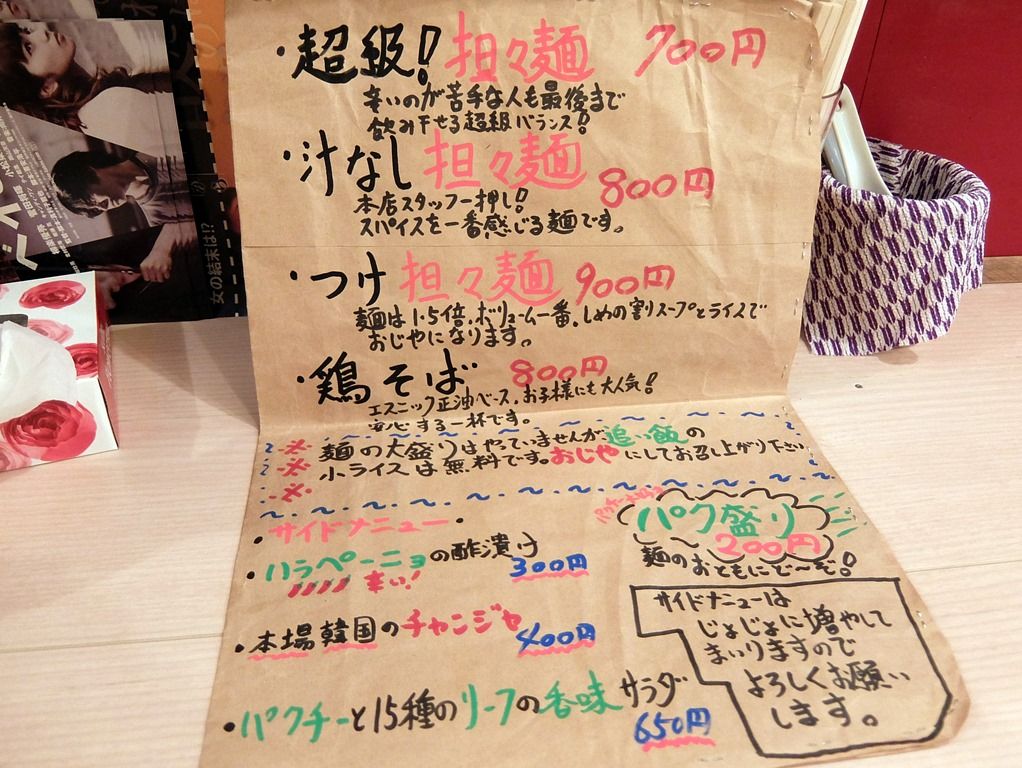 ・超級！担々麺 700円
辛いのが苦手な人も最後まで
飲み干せる超級バランス！
・汁なし担々麺 800円
本店スタッフ一押し！
スパイスを一番感じる麺です。
・つけ担々麺 900円
麺は1.5倍、ボリューム一番、しめの割りスープとライスで
おじやになります。
・鶏そば 800円
エスニック正油ベース、お子様にも大人気！
安心する一杯です。
※麺の大盛りはやっていませんが、追い飯の
※小ライスは無料です。おじやにしてお召し上がり下さい
※
・サイドメニュー・
・ハラペーニョの酢漬け
辛い！ 300円
・本場韓国のチャンジャ
400円
・パクチーと15種のリーフの香味サラダ
650円
パク盛り
200円
麺のおともにど〜ぞ！
サイドメニューは
じょじょに増やして
まいりますので
よろしくお願い
します。
女の結末は!?